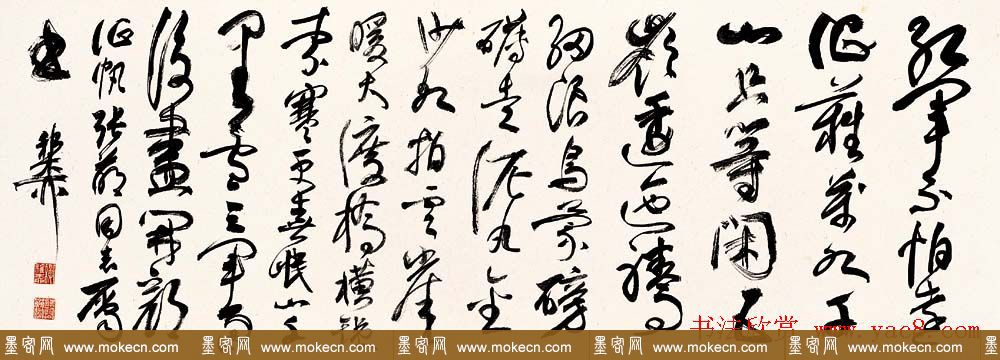 红军不怕远
征难万水千
山只等闲五
岭逶迤腾
细浪乌蒙磅
礴走泥丸金
沙水拍云崖
暖大渡桥横铁
索寒更喜岷山千
里雪三军过
后尽开颜
征帆张同志属
书
书法欣赏 www.yac8.com
墨客网 www.mokecn.com 墨客网 www.mokecn.com 墨客网 www.mokecn.com 墨客网 www.mokecn.com 墨客网 www.mokecn.com